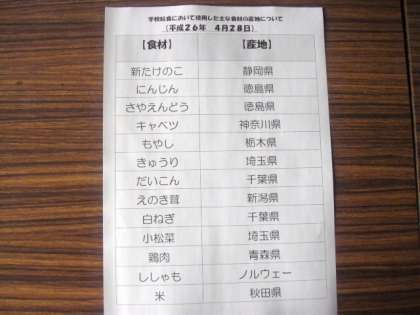 学校給食において使用した主な食材の産地について
(平成26年 4月28日)
【食材】 【産地】
新たけのこ 静岡県
にんじん 徳島県
さやえんどう 徳島県
キャベツ 神奈川県
もやし 栃木県
きゅうり 埼玉県
だいこん 千葉県
えのき茸 新潟県
白ねぎ 千葉県
小松菜 埼玉県
鶏肉 青森県
ししゃも ノルウェー
米 秋田県